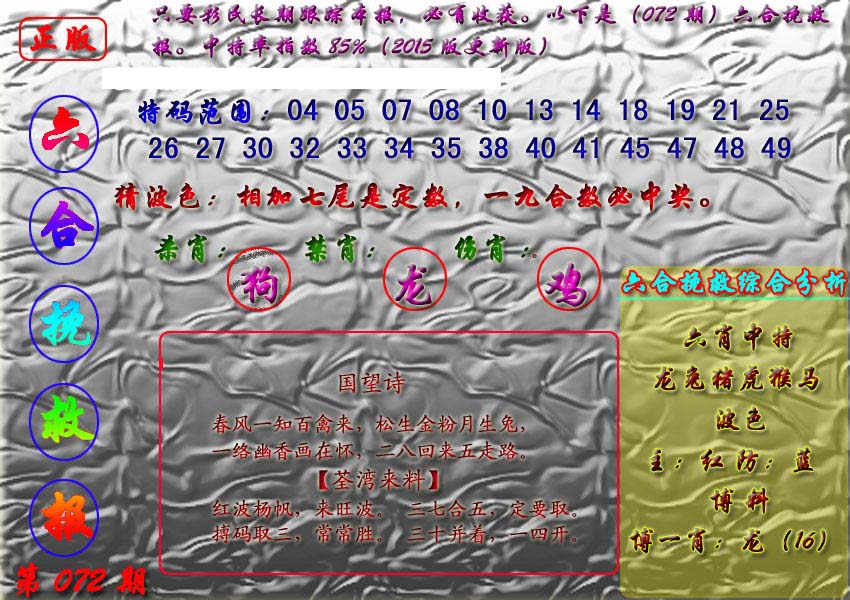 正版
只要彩民长期跟踪本报，必有收获。以下是（072期）六合挽救
报。中特率指数85%（2015版更新版）
六
合
挽
救
报
第072期
特码范围：04 05 07 08 10 13 14 18 19 21 25
26 27 30 32 33 34 35 38 40 41 45 47 48 49
猜波色：相加七尾是定数，一九合数必中奖。
杀肖： 禁肖： 伤肖：
狗 龙 鸡
国望诗
春风一知百禽来，松生金粉月生兔，
一络幽香画在怀，二八回来五走路。
【荃湾来料】
红波杨帆，来旺波。 三七合五，定要取。
搏码取三，常常胜。 三十并着，一四开。
六合挽救综合分析
六肖中特
龙兔猪虎猴马
波色
主：红防：蓝
博料
博一肖：龙（16）